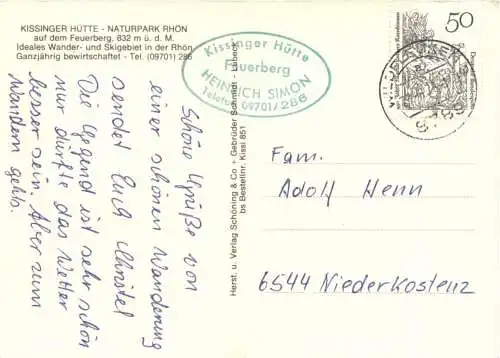 KISSINGER HÜTTE - NATURPARK RHÖN
auf dem Feuerberg, 832 m ü. d. M.
Ideales Wander- und Skigebiet in der Rhön
Ganzjährig bewirtschaftet - Tel. (09701) 286
Kissinger Hütte
Feuerberg
HEINRICH SIMON
Telefon 09701/286
Schöne Grüße von
einer schönen Wanderung
sendet Euch Christel
Die Gegend ist sehr schön
nur dürfte das Wetter
besser sein. Aber zum
Wandern gehts.
Herst. u. Verlag Schöning & Co + Gebrüder Schmidt - Lübeck
bs Bestellnr. Kissi 851
50
Fam.
Adolf Henn
6544 Niederkostenz